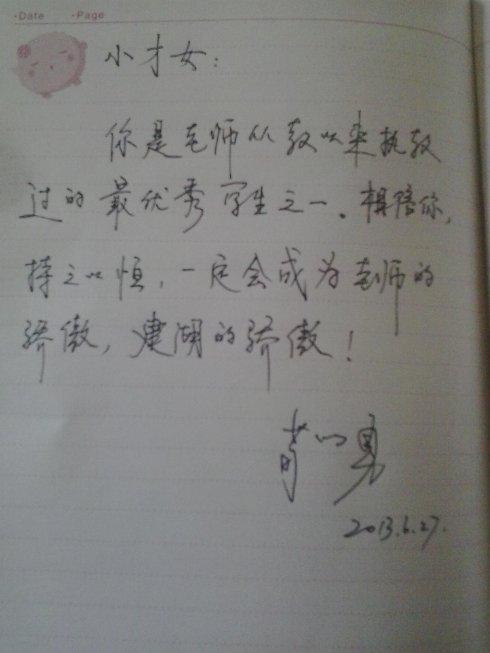 ·Date ·Page
小才女：
你是老师从教以来执教
过的最优秀学生之一。相信你，
持之以恒，一定会成为老师的
骄傲，建湖的骄傲！
勇
2013.6.27.